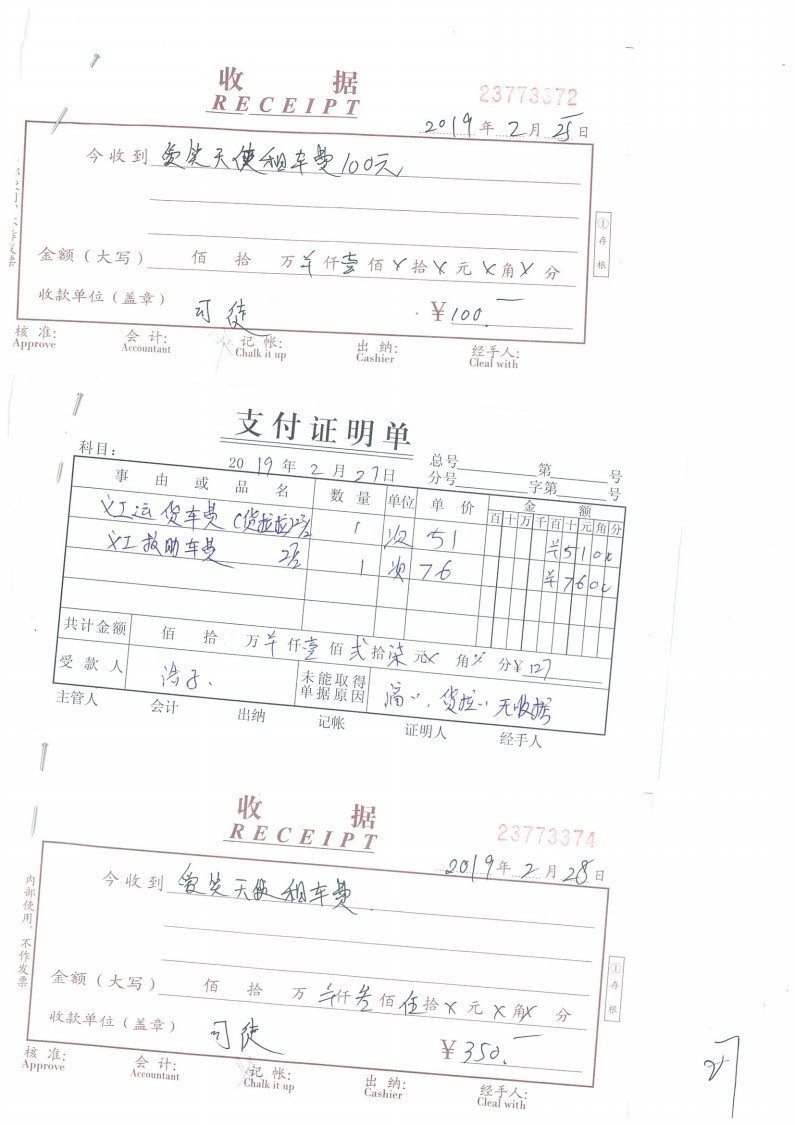 收 据
RECEIPT
23773372
2019年2月25日
今收到 爱笑天使租车费100元
金额（大写） 佰 拾 万 仟壹佰 拾 元 角 分
收款单位（盖章） 司徒 ¥100.
① 存根
核准: 会计: 记帐: 出纳: 经手人:
Approve Accountant Chalk it up Cashier Cleal with
支付证明单
科目:
2019年2月27日
总号 第 号
分号 字第 号
事由或品名 数量 单位 单价 金额
百十万千百十元角分
义工运货车费（货拉拉） 1 次 51
义工救助车费 1 次 76
共计金额 佰 拾 万 仟壹佰贰拾柒元 角 分¥127
受款人 浩子. 未能取得单据原因 滴〃.货拉〃无收据
主管人 会计 出纳 记帐 证明人 经手人
收 据
RECEIPT
23773374
2019年2月28日
内部使用,不作发票
今收到 爱笑天使租车费
金额（大写） 佰 拾 万 仟叁佰伍拾 元 角 分
收款单位（盖章） 司徒 ¥350.
① 存根
核准: 会计: 记帐: 出纳: 经手人:
Approve Accountant Chalk it up Cashier Cleal with